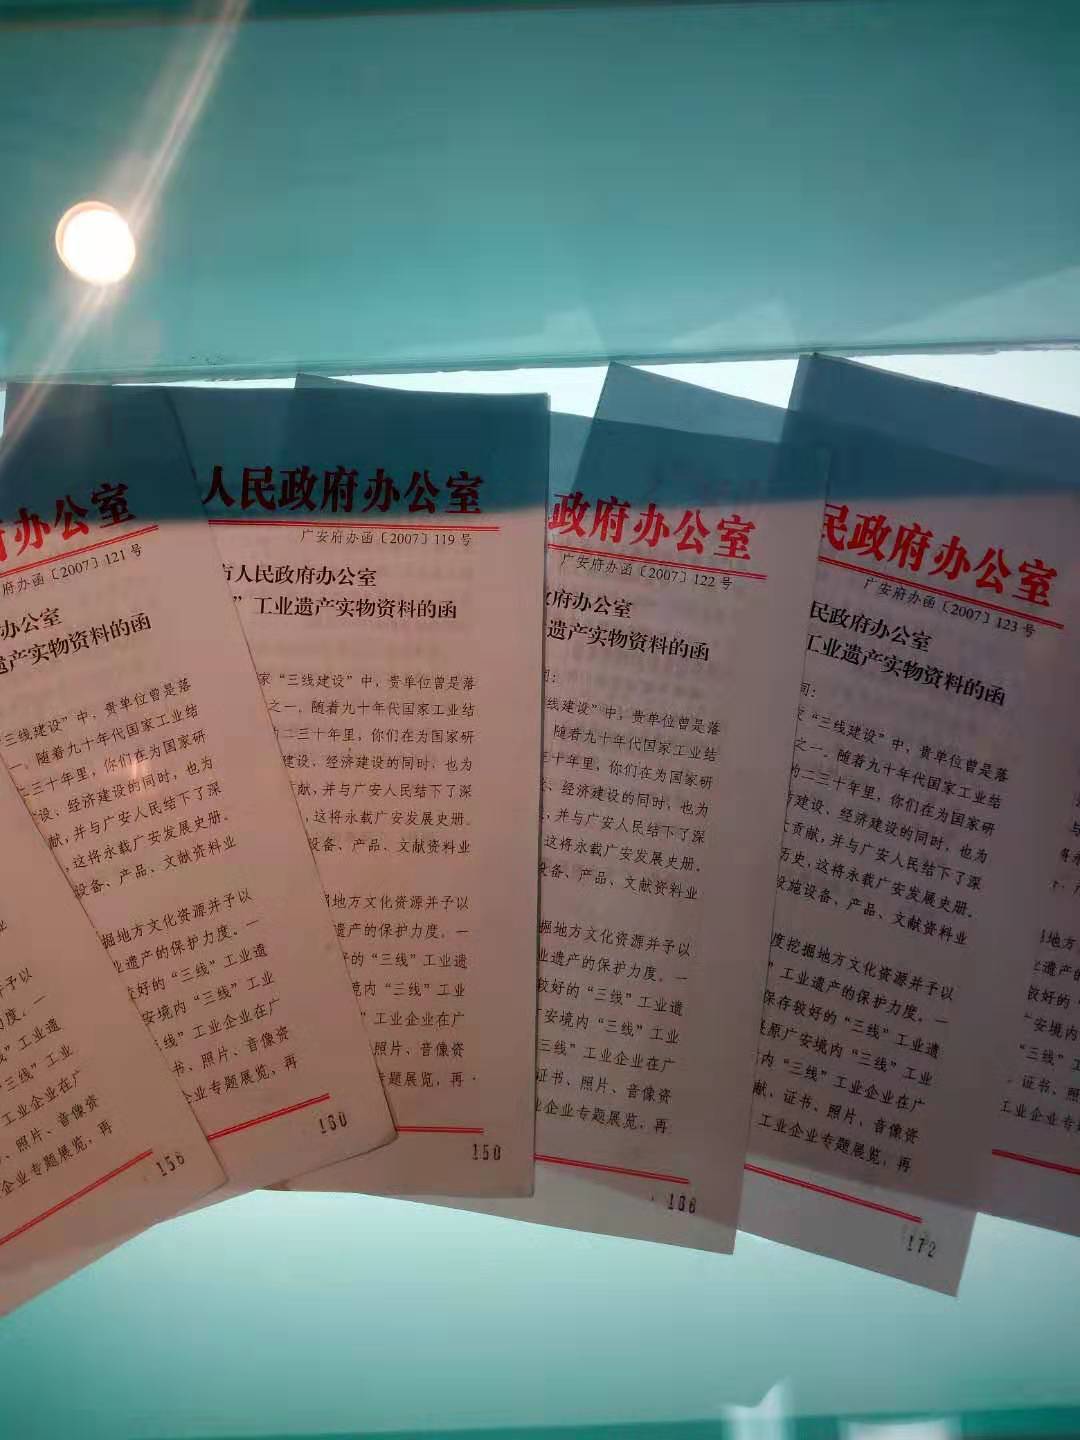 府办公室
府办函〔2007〕121 号
办公室
遗产实物资料的函
三线建设”中，贵单位曾是落
一，随着九十年代国家工业结
二三十年里，你们在为国家研
设、经济建设的同时，也为
献，并与广安人民结下了深
，这将永载广安发展史册。
设备、产品、文献资料业
掘地方文化资源并予以
业遗产的保护力度。一
较好的“三线”工业遗
安境内“三线”工业
”工业企业在广
书、照片、音像资
企业专题展览，再
160
并予以
力度。一
”工业遗
“三线”工业
工业企业在广
、照片、音像资
企业专题展览，再
156
人民政府办公室
广安府办函〔2007〕119 号
市人民政府办公室
”工业遗产实物资料的函
家“三线建设”中，贵单位曾是落
之一，随着九十年代国家工业结
二三十年里，你们在为国家研
建设、经济建设的同时，也为
贡献，并与广安人民结下了深
，这将永载广安发展史册。
设备、产品、文献资料业
掘地方文化资源并予以
遗产的保护力度。一
好的“三线”工业遗
境内“三线”工业
”工业企业在广
照片、音像资
专题展览，再
150
政府办公室
广安府办函〔2007〕122 号
政府办公室
遗产实物资料的函
司：
线建设”中，贵单位曾是落
，随着九十年代国家工业结
三十年里，你们在为国家研
、经济建设的同时，也为
，并与广安人民结下了深
这将永载广安发展史册。
设备、产品、文献资料业
掘地方文化资源并予以
业遗产的保护力度。一
较好的“三线”工业遗
广安境内“三线”工业
三线”工业企业在广
证书、照片、音像资
业企业专题展览，再
166
民政府办公室
广安府办函〔2007〕123 号
民政府办公室
工业遗产实物资料的函
司：
家“三线建设”中，贵单位曾是落
之一，随着九十年代国家工业结
的二三十年里，你们在为国家研
建设、经济建设的同时，也为
大贡献，并与广安人民结下了深
历史，这将永载广安发展史册。
设施设备、产品、文献资料业
度挖掘地方文化资源并予以
”工业遗产的保护力度。一
保存较好的“三线”工业遗
还原广安境内“三线”工业
内“三线”工业企业在广
献，证书、照片、音像资
工业企业专题展览，再
172
地方
遗产的
较好的“
广安境
“三线”工
、照
工业企业专